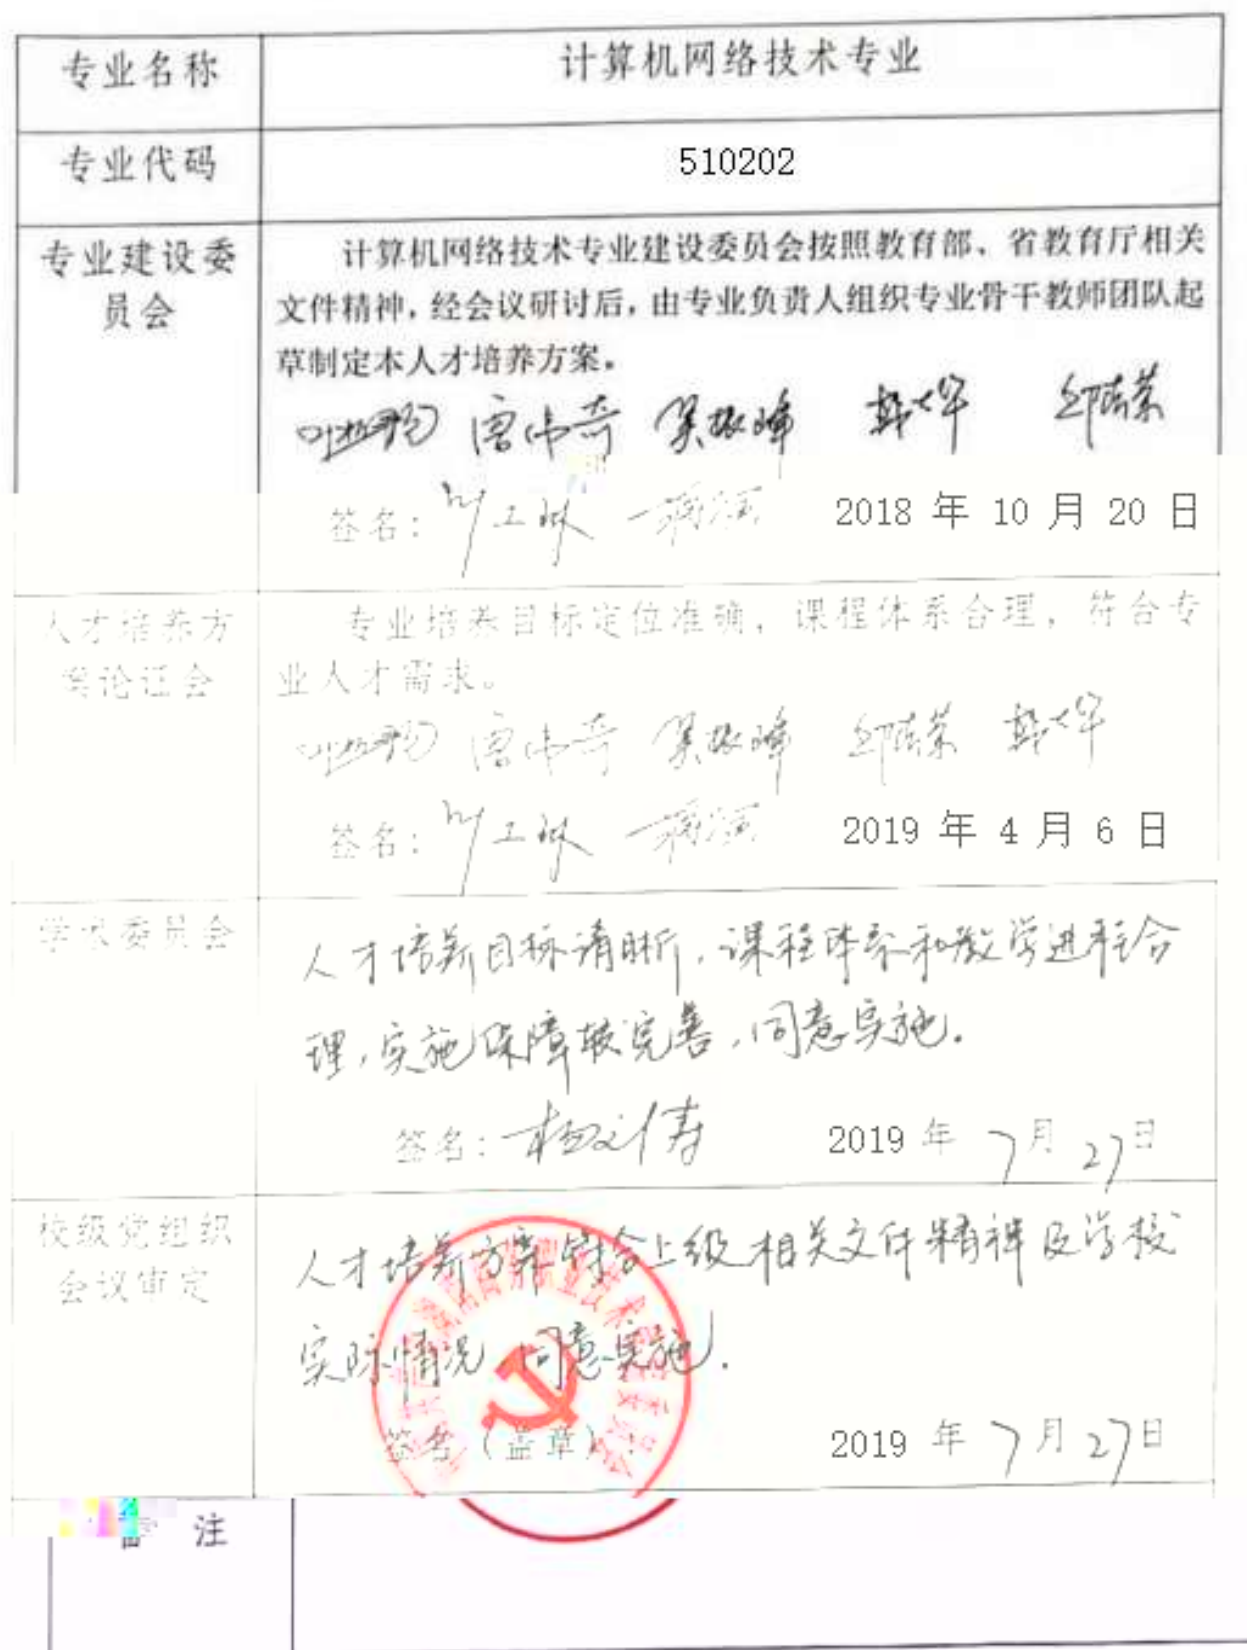 专业名称
计算机网络技术专业
专业代码
510202
专业建设委
员会
计算机网络技术专业建设委员会按照教育部、省教育厅相关
文件精神，经会议研讨后，由专业负责人组织专业骨干教师团队起
草制定本人才培养方案。
唐伟奇 吴振峰 邱志荣
签名： 2018 年 10 月 20 日
人才培养方
案论证会
专业培养目标定位准确，课程体系合理，符合专
业人才需求。
唐伟奇 吴振峰 邱志荣
签名： 2019 年 4 月 6 日
学术委员会
人才培养目标清晰，课程体系和教学进程合
理，实施保障较完善，同意实施.
签名： 2019 年 7 月 27 日
校级党组织
会议审定
人才培养方案符合上级相关文件精神及学校
实际情况，同意实施.
签名（盖章）： 2019 年 7 月 27 日
备 注